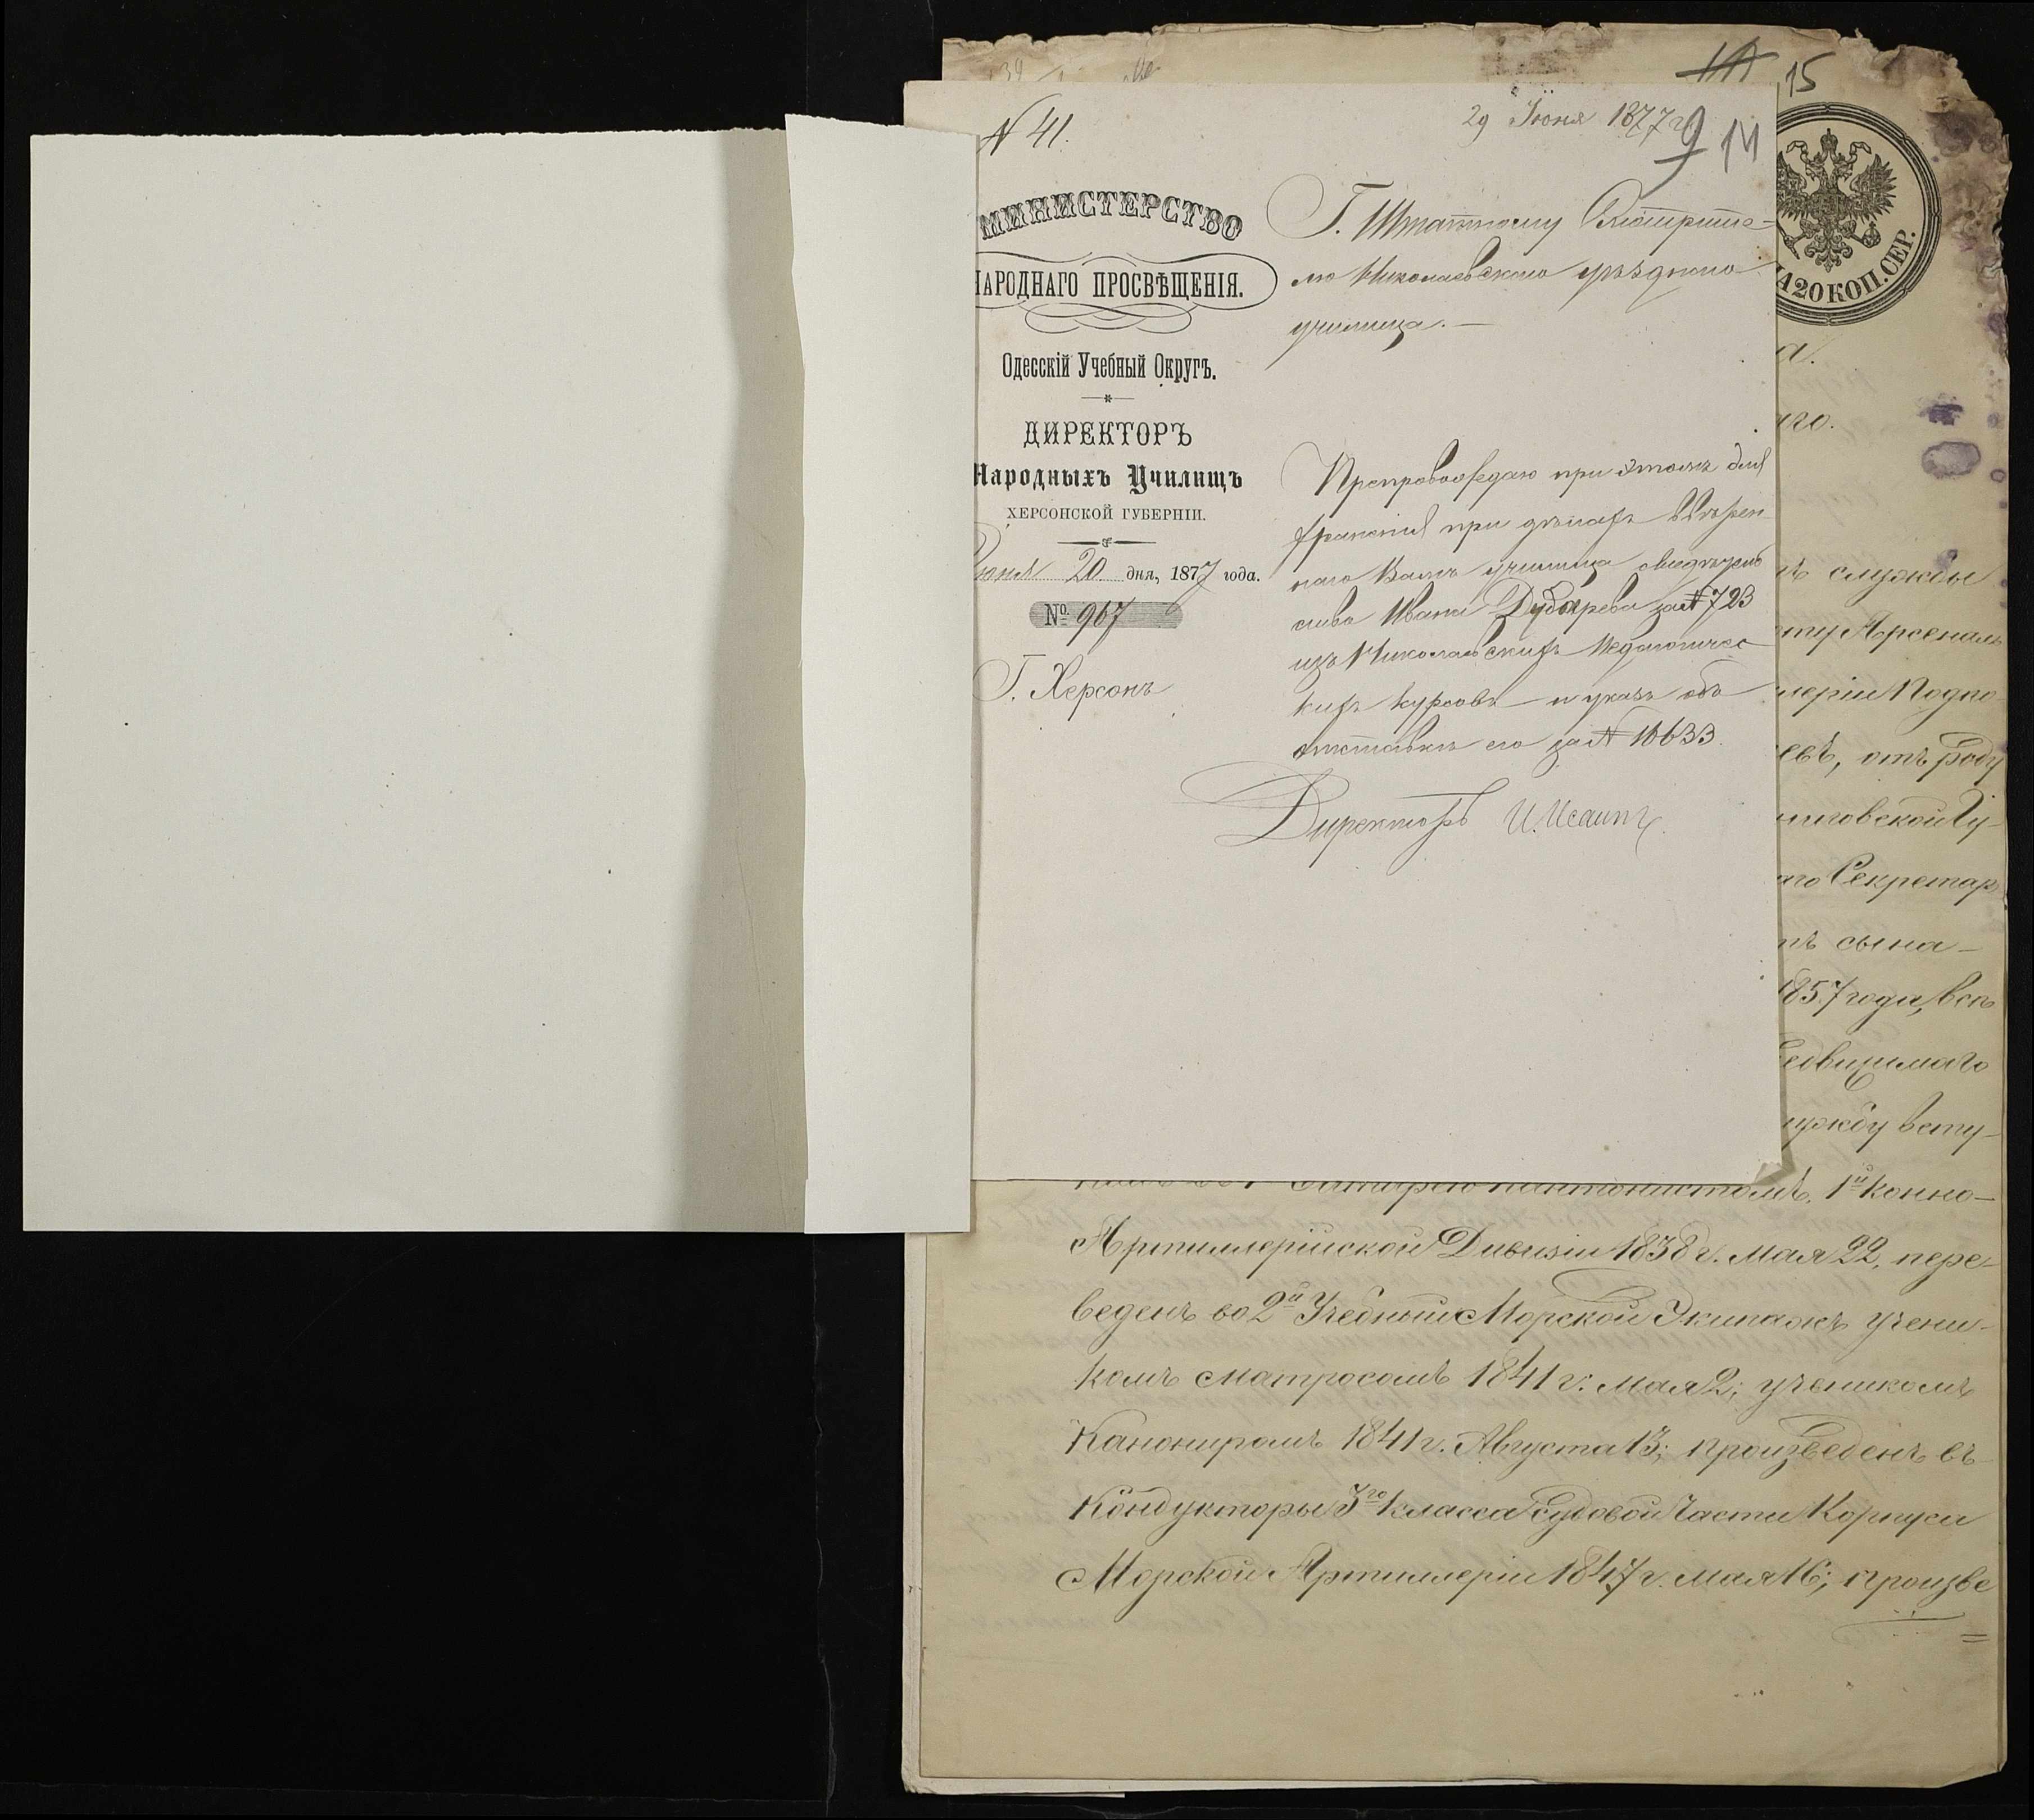 15
№ 41.
29 Іюня 1877 г.
9 14
МИНИСТЕРСТВО
НАРОДНАГО ПРОСВѢЩЕНІЯ.
Одесскій Учебный Округъ.
ДИРЕКТОРЪ
Народныхъ Училищъ
ХЕРСОНСКОЙ ГУБЕРНІИ.
Іюня 20 дня, 1877 года.
№ 967
Г. Херсонъ
Г. Штатному Смотрите-
лю Николаевскаго уѣзднаго
училища.—
Препровождаю при этомъ для
храненія при дѣлахъ ввѣрен
наго Вамъ училища свидѣтель
ство Ивана Дубарева за № 723
изъ Николаевскихъ Педагогичес
кихъ курсовъ и указъ объ
отставкѣ его за № 10633.
Директоръ И. Исаинъ
НА 20 КОП. СЕР.
а.
аго.
службы
Арсеналь
леріи Подпо
евъ, отъ роду
иговской Гу-
аго Секретар
сына—
1857 года, всп
движимаго
лужбу всту-
кантонистомъ, 1й конно-
Артиллерійской Дивизіи 1838 г. Мая 22, пере-
веденъ во 2й Учебный Морской Экипажъ учени-
комъ матросомъ 1841 г. Мая 2; ученикомъ
Канониромъ 1841 г. Августа 13; произведенъ въ
Кондукторы 3го класса Судовой Части Корпуса
Морской Артиллеріи 1847 г. Мая 16; произве